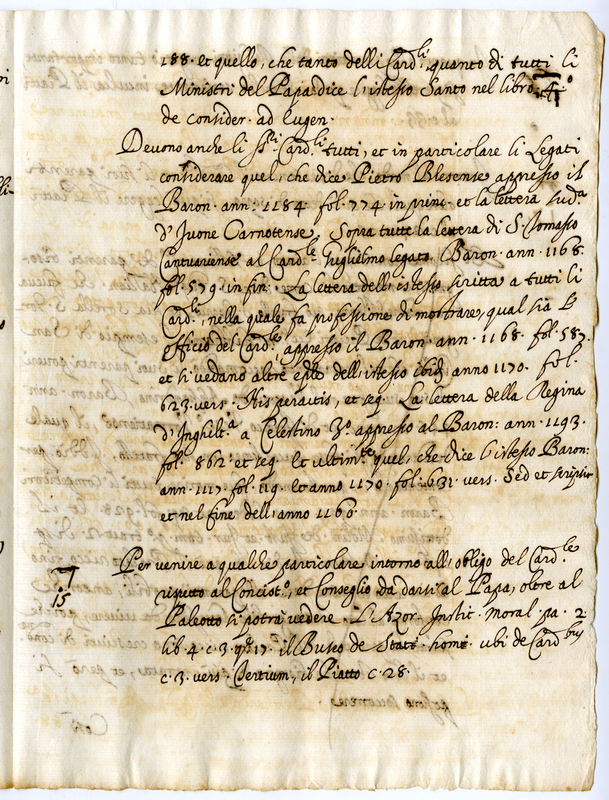 188. et quello, che tanto delli Card.li, quanto di tutti li
Ministri del Papa dice l'istesso Santo nel libro 4.o
de consider. ad Eugen.
Devono anche li SS.ri Card.li tutti, et in particolare li Legati
considerare quel, che dice Pietro Blesense appresso il
Baron. ann. 1184. fol. 774 in princ. et la lettera sud.a
d'Juone Carnotense. Sopra tutte la lettera di S. Tomasso
Cantuariense al Card.le Guglielmo legato. Baron. ann. 1168.
fol. 579. in fin. La lettera dell'istesso scritta a tutti li
Card.li, nella quale fa professione di mostrare, qual sia l'
officio del Card.le, appresso il Baron. ann. 1168. fol. 587.
et si vedano altre dell'istesso ibid. anno 1170. fol.
623. vers. His peractis, et seq. La lettera della Regina
d'Inghilt.a a Celestino 3.o appresso al Baron: ann. 1193.
fol. 862. et seq. Et ultim.te quel, che dice l'istesso Baron:
ann. 1117. fol. 119. et anno 1170. fol. 631. vers. Sed et
et nel fine dell'anno 1160.
Per venire a qualche particolare intorno all'obligo del Card.le
15 rispetto al Concist.o, et Conseglio da darsi al Papa, oltre al
Paleotto si potrà vedere. L'Azor. Instit. Moral. pa. 2.
lib. 4. c. 3. q. 17. il Buseo de Stati. homi. ubi de Card.bus
c. 3. vers. Tertium, il Piatto c. 28.